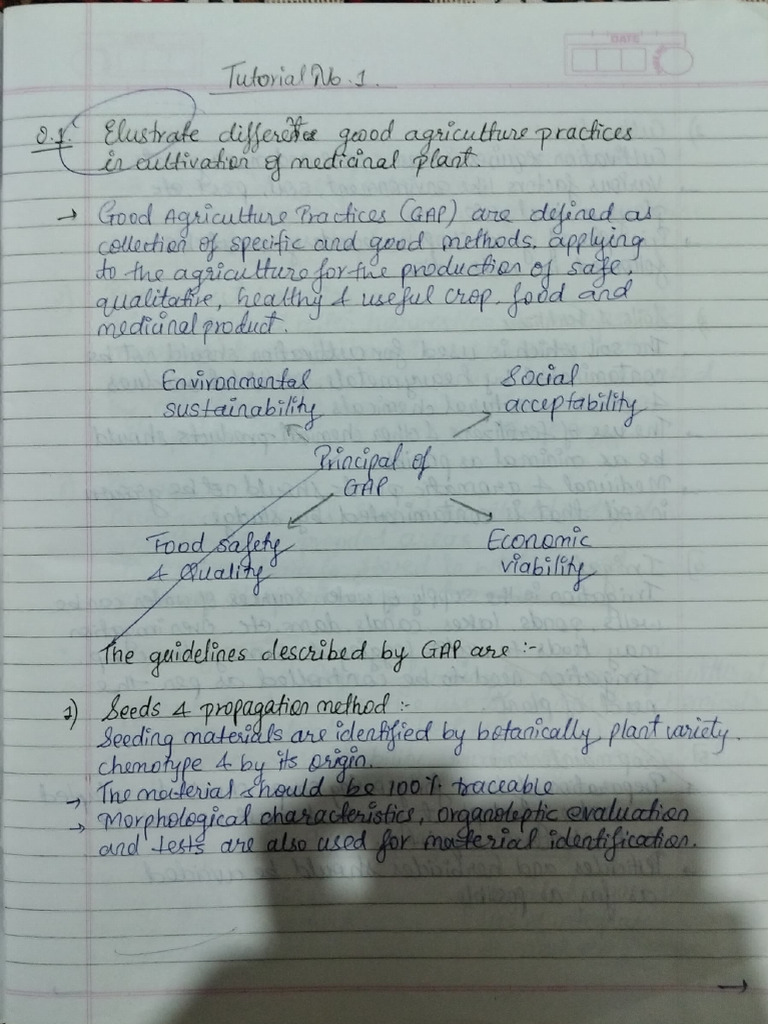 Tutorial No. 1.
Q.1. Elustrate different good agriculture practices
in cultivation of medicinal plant.
→ Good Agriculture Practices (GAP) are defined as
collection of specific and good methods. applying
to the agriculture for the production of safe,
qualitative, healthy & useful crop, food and
medicinal product.
Environmental sustainability
Social acceptability
Principal of GAP
Food safety & Quality
Economic viability
The guidelines described by GAP are :-
1) Seeds & propagation method :-
Seeding materials are identified by botanically, plant variety.
chemotype & by its origin.
→ The material should be 100% traceable
→ Morphological characteristics, organoleptic evaluation
and tests are also used for material identification.
→